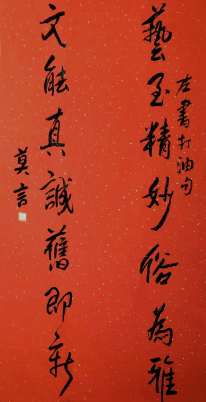 左書打油句
藝至精妙俗為雅
文能真誠舊即新
莫言